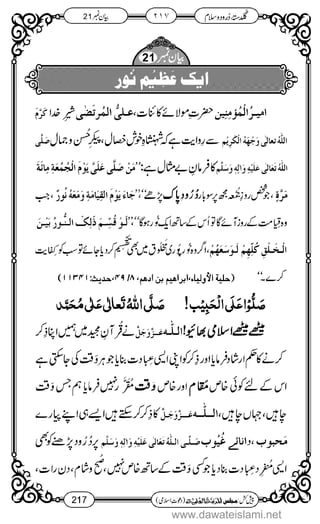 گلدستۂ دُرود و سلام ۲۱۷ بیان نمبر 21
بیان نمبر 21
ایک عَظِیْم نُور
امیرُ الْمُؤْمِنِیْن حضرتِ مولائے کائنات، علیُّ الْمُرتَضٰی شیرِ خدا کَرَّمَ
اللهُ تَعَالٰی وَجْهَهُ الْكَرِیْم سے رِوایت ہے کہ شہنشاہِ خوش خصال، پیکرِ حُسن و جمال صَلَّی
اللهُ تَعَالٰی عَلَیْهِ وَاٰلِهٖ وَسَلَّم کا فرمانِ بے مثال ہے: ’’مَنْ صَلّٰی عَلَیَّ یَوْمَ الْجُمُعَةِ مِائَةَ
مَرَّةٍ، جو شخص روزِ جمعہ مجھ پر سو بار دُرُودِ پاک پڑھے’’جَاءَ یَوْمَ الْقِیَامَةِ وَمَعَهٗ نُوْرٌ، جب
وہ قیامت کے روز آئے گا تو اُس کے ساتھ ایک نُور ہوگا‘‘، ’’لَوْ قُسِّمَ ذٰلِكَ النُّورُ بَیْنَ
الْخَلْقِ كُلِّهِمْ لَوَسِعَهُمْ، اگر وہ نُور ساری مخلوق میں تقسیم بھی کر دیا جائے تو سب کو کِفایت
کرے۔‘‘ (حلیة الأولیاء، ابراهیم بن ادهم، ۴۹/۸، حدیث: ۱۱۳۴۱)
صَلُّوْا عَلَی الْحَبِیْب! صَلَّی اللهُ تَعَالٰی عَلٰی مُحَمَّد
میٹھے میٹھے اسلامی بھائیو! اللّٰه عَزَّوَجَلَّ نے قُرآنِ مجید میں ہمیں اپنا ذِکر
کرنے کا حکم اِرشاد فرمایا اور ذِکر کرنا ایسی عبادت ہے جو ہر وقت کی جاسکتی ہے
اس کے لئے کوئی خاص مَقام اور خاص وقت مُقَرَّر نہیں فرمایا بس ہم جس وقت
چاہیں، جہاں چاہیں، اللّٰه عَزَّوَجَلَّ کا ذکر کر سکتے ہیں ایسے ہی اپنے پیارے
محبوب، دانائے غُیُوب صَلَّی اللهُ تَعَالٰی عَلَیْهِ وَاٰلِهٖ وَسَلَّم پر دُرُود پڑھنے کو بھی
ایسی مُنفرِد عبادت بنا دیا جو کسی وقت کے ساتھ خاص نہیں، صبح و شام، دن رات،
217
www.dawateislami.net